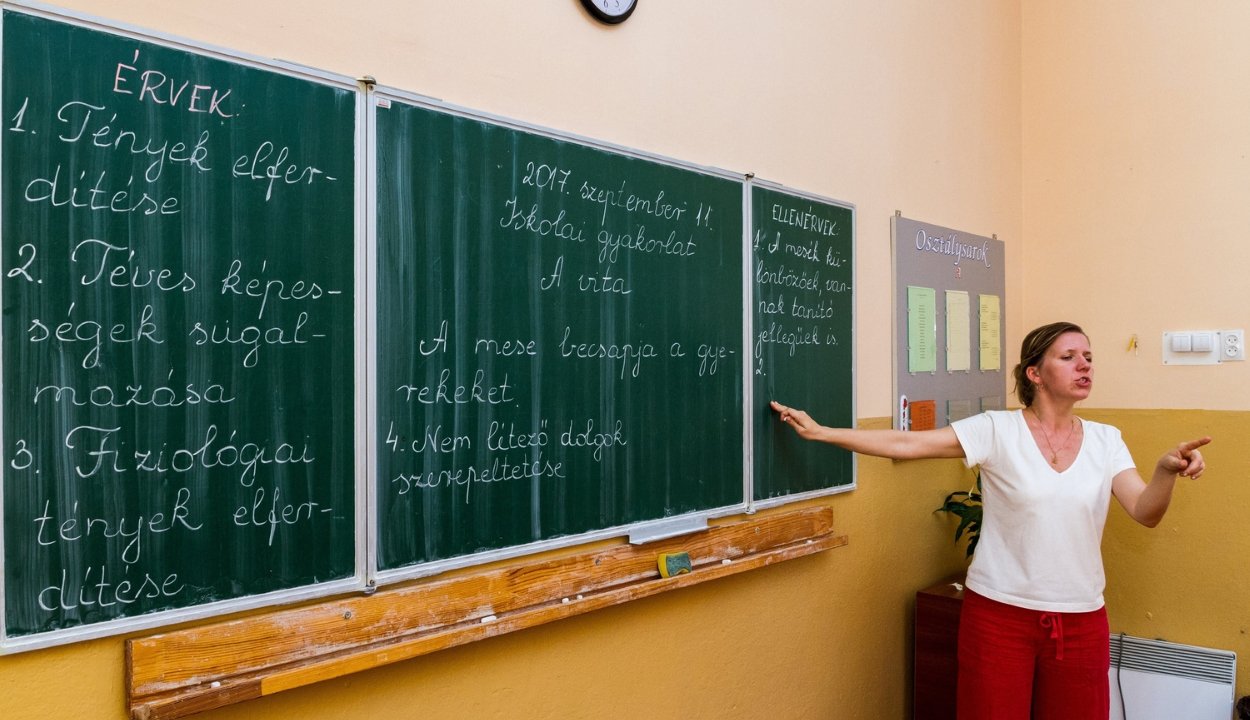 ÉRVEK:
1. Tények elfer-
dítése
2. Téves képes-
ségek sugal-
mazása
3. Fiziológiai
tények elfer-
dítése
2017. szeptember 11.
Iskolai gyakorlat
A vita
A mese becsapja a gye-
rekeket.
4. Nem létező dolgok
szerepeltetése
ELLENÉRVEK:
1. A mesék kü-
lönbözőek, van-
nak tanító
jellegűek is.
2.
Osztálysarok